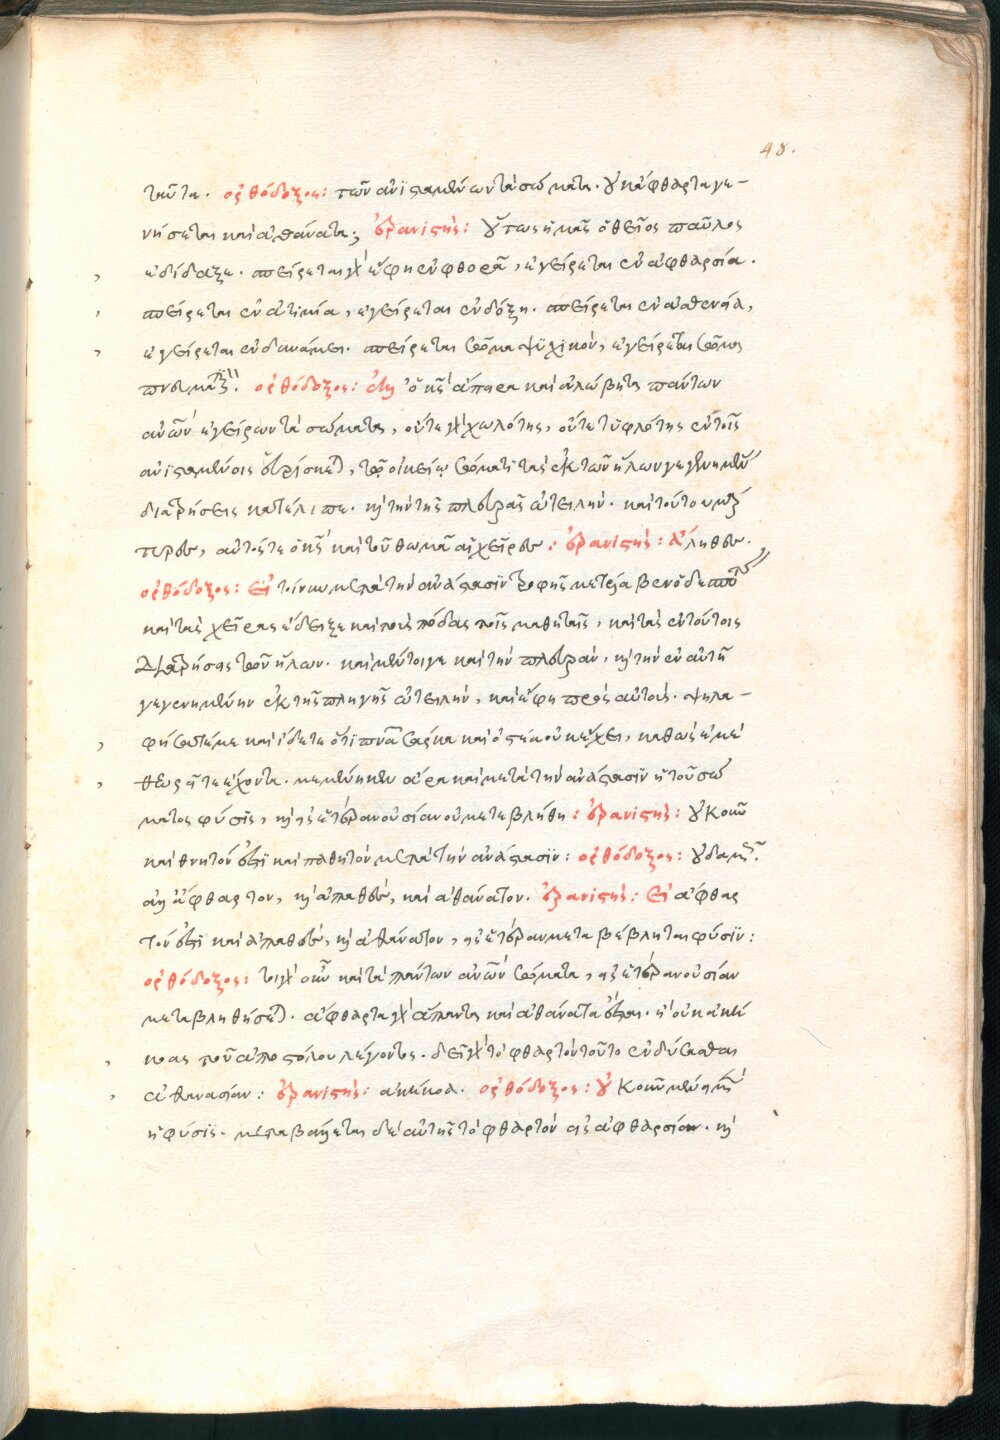 48.
ταῦτα. ὀρθόδοξος: τῶν ἀνϊσταμένων τὰ σώματα. οὐκ ἄφθαρτα γε-
νήσεται καὶ ἀθάνατα; ἐρανιστής: οὕτως ἡμᾶς ὁ θεῖος παῦλος
ἐδίδαξε. σπείρεται γὰρ ἔφη ἐν φθορᾶ, ἐγείρεται ἐν ἀφθαρσία.
σπείρεται ἐν ἀτιμία, ἐγείρεται ἐν δόξη. σπείρεται ἐν ἀσθενεία,
ἐγείρεται ἐν δυνάμει. σπείρεται σῶμα ψυχικὸν, ἐγείρεται σῶμα
πνευματικόν. ὀρθόδοξος: ἀλλ' ὁ κς ἄπηρα καὶ ἀλώβητα πάντων
ἀνων ἐγείρων τὰ σώματα, οὔτε γὰρ χωλότης, οὔτε τυφλότης ἐν τοῖς
ἀνισταμένοις εὑρίσκεται, τῶ οἰκείω σώματϊ τὰς ἐκ τῶν ἥλων γεγενημένας
διατρήσεις κατέλιπε. καὶ τὴν τῆς πλευρᾶς ὠτειλήν. καὶ τούτου μάρ
τυρες, αὐτός τε ὁ κς καὶ τοῦ θωμᾶ αἱ χεῖρες: ἐρανιστής: ἀληθές.
ὀρθόδοξος: Εἰ τοίνυν μετὰ τὴν ἀνάστασϊν τροφῆς μετέλαβεν ὁ δεσπότης
καὶ τὰς χεῖρας ἔδειξε καὶ τοὺς πόδας τοῖς μαθηταῖς, καὶ τὰς ἐν τούτοις
διατρήσεις τῶν ἥλων. καὶ μέντοι γε καὶ τὴν πλευρὰν, καὶ τὴν ἐν αὐτῆ
γεγενημένην ἐκ τῆς πληγῆς ὠτειλὴν, καὶ ἔφη πρὸς αὐτούς. ψηλα-
φήσατέ με καὶ ἴδετε ὅτϊ πνα σάρκα καὶ ὀστέα οὐκ ἔχει, καθὼς ἐμὲ
θεωρεῖτε ἔχοντα. μεμένηκεν ἄρα καὶ μετὰ τὴν ἀνάστασϊν ἡ τοῦ σώ
ματος φύσϊς, καὶ εἰς ἑτέραν οὐσίαν οὐ μετεβλήθη: ἐρανιστής: οὐκοῦν
καὶ θνητόν ἐστϊ καὶ παθητὸν μετὰ τὴν ἀνάστασϊν: ὀρθόδοξος: οὐδαμῶς.
ἀλλ' ἄφθαρτον, καὶ ἀπαθὲς, καὶ ἀθάνατον. ἐρανιστής: Εἰ ἄφθαρ
τόν ἐστϊ καὶ ἀπαθὲς, καὶ ἀθάνατον, εἰς ἑτέραν μεταβέβληται φύσϊν:
ὀρθόδοξος: τοιγαροῦν καὶ τὰ πάντων ἀνων σώματα, εἰς ἑτέραν οὐσίαν
μεταβληθήσεται. ἄφθαρτα γὰρ ἅπαντα καὶ ἀθάνατα ἔσται. ἢ οὐκ ἀκή
κοας τοῦ ἀποστόλου λέγοντος. δεῖ γὰρ τὸ φθαρτὸν τοῦτο ἐνδύσασθαι
ἀθανασίαν: ἐρανιστής: ἀκήκοα. ὀρθόδοξος: οὐκοῦν μένει μὲν
ἡ φύσϊς. μεταβάλλεται δὲ αὐτῆς τὸ φθαρτὸν εἰς ἀφθαρσίαν. καὶ